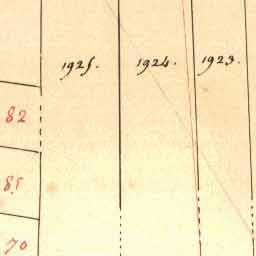 1925. 1924. 1923.
82
85
70